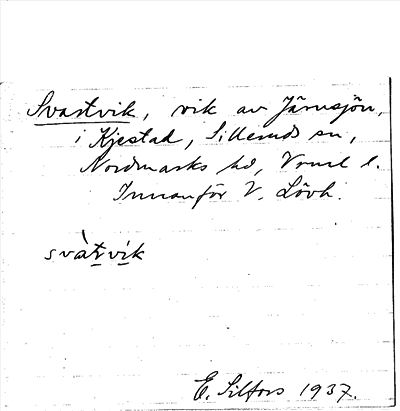 Svartvik, vik av Järnsjön,
i Kjestad, Silleruds sn,
Nordmarks hd, Vrml l.
Innanför V. Lövh.
svàtvik
E. Silfors 1937.